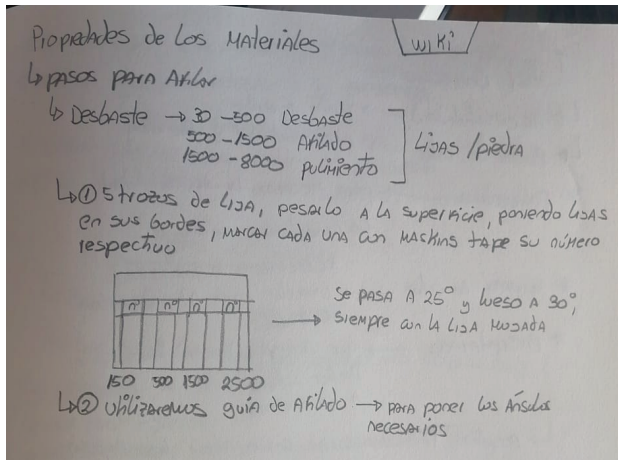 Propiedades de los Materiales
wiki
↳ pasos para Afilar
↳ Desbaste → 30 - 500 Desbaste
500 - 1500 Afilado
1500 - 8000 pulimiento
Lijas / piedra
↳ ① 5 trozos de lija, pegarlo a la superficie, poniendo lijas
en sus bordes, marcar cada una con masking tape su número
respectivo
nº nº nº nº
150 500 1500 2500
→ Se pasa a 25° y luego a 30°,
siempre con la lija mojada
↳ ② Utilizaremos guía de Afilado → para poner los ángulos
necesarios